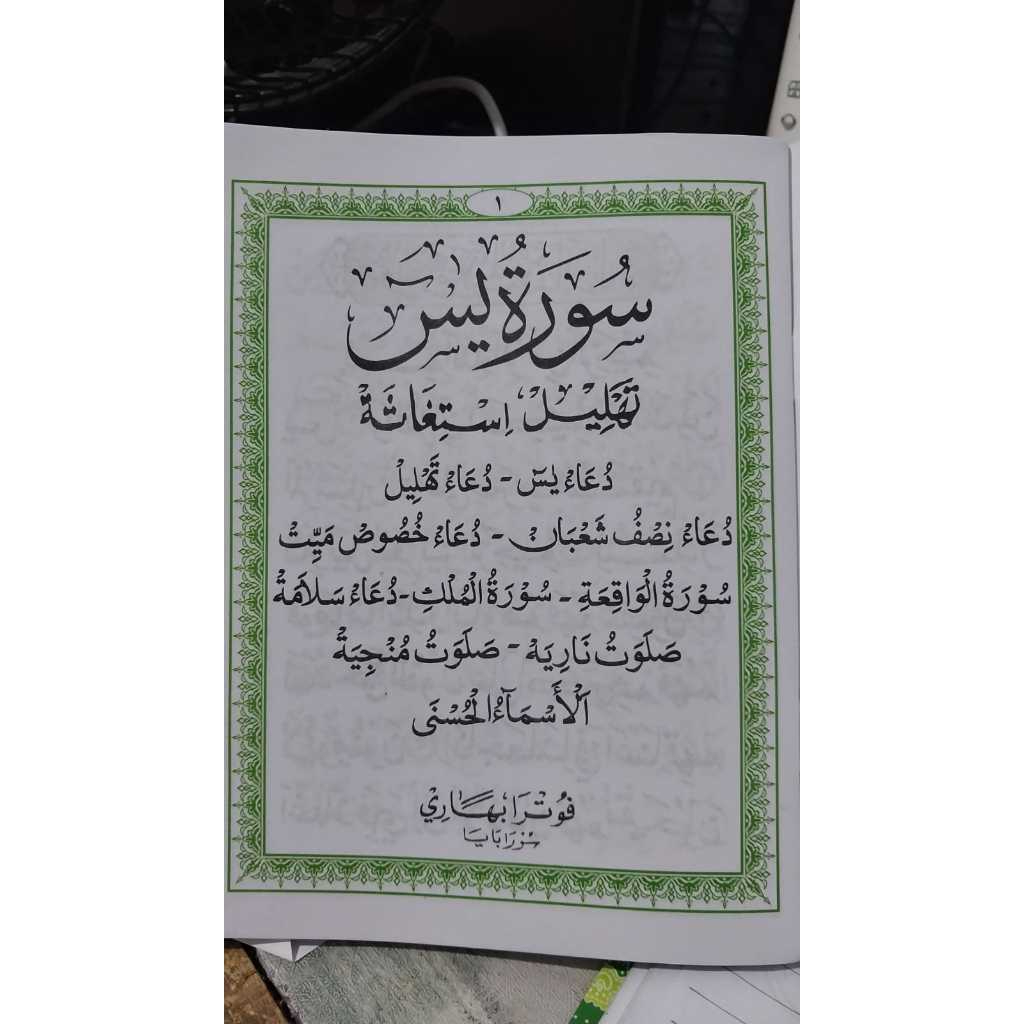 ١
سُورَةُ يٰسٓ
تَهْلِيْلْ اِسْتِغَاثَةْ
دُعَاءْ يٰسٓ - دُعَاءْ تَهْلِيْلْ
دُعَاءْ نِصْفُ شَعْبَانْ - دُعَاءْ خُصُوصْ مَيِّتْ
سُوْرَةُ الْوَاقِعَةِ - سُوْرَةُ الْمُلْكِ - دُعَاءْ سَلَامَةْ
صَلَوَتُ نَارِيَةْ - صَلَوَتُ مُنْجِيَةْ
اَلْأَسْمَآءُ الْحُسْنَى
فُوْتْرَا بِهَارِيْ
سُوْرَابَايَا